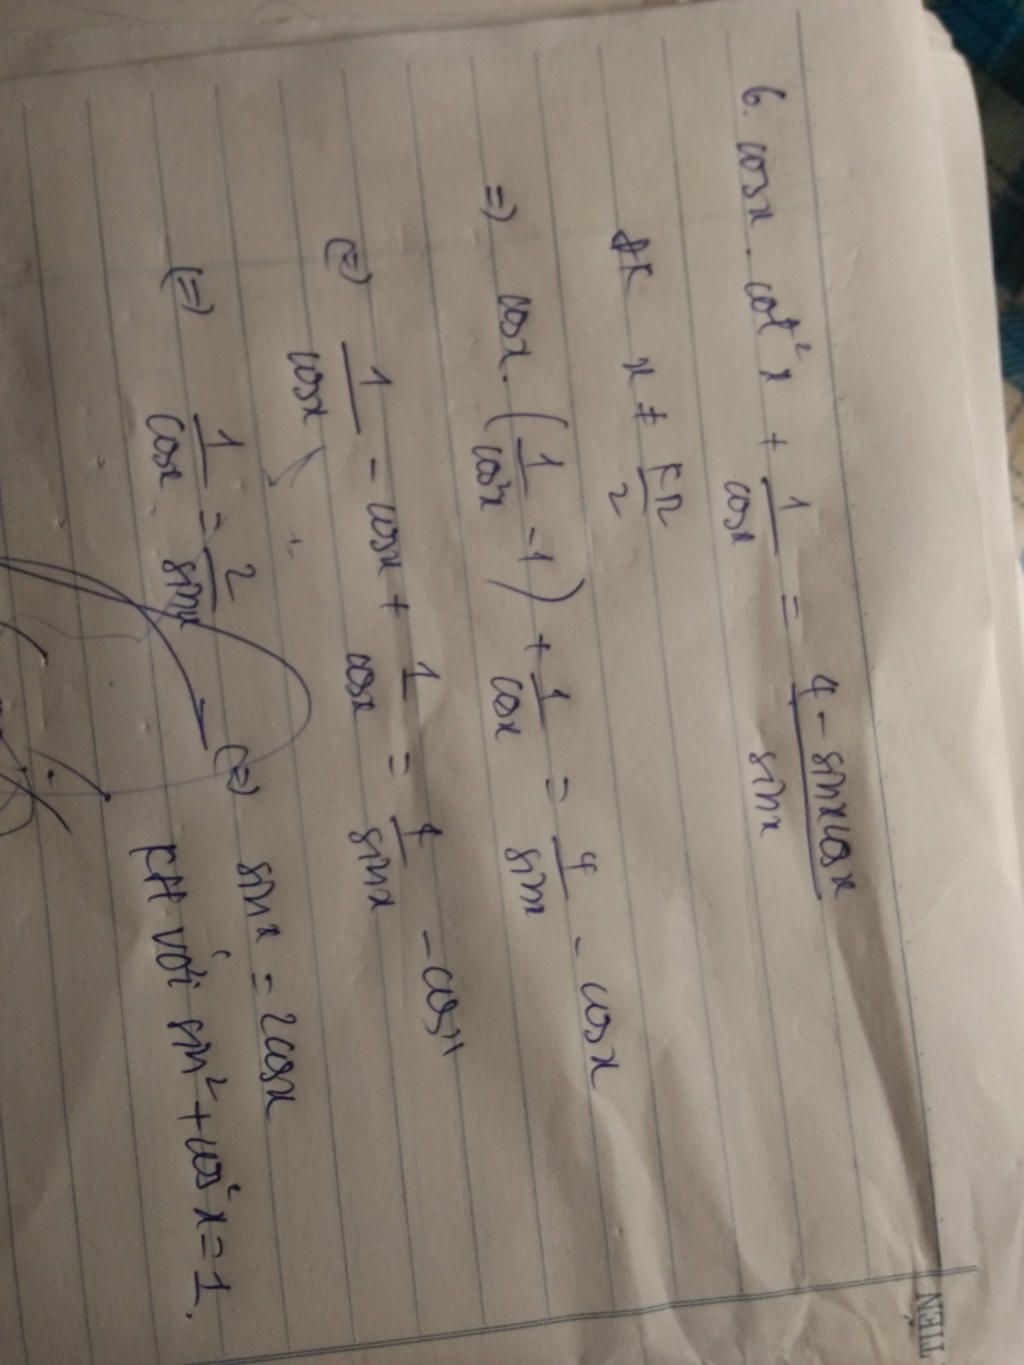 6. cosx . cot²x + 1/cosx = (4 - sinxcosx)/sinx
ĐK x ≠ kπ/2
=> cosx. (1/cos²x - 1) + 1/cosx = 4/sinx - cosx
(=) 1/cosx - cosx + 1/cosx = 4/sinx - cosx
(=) 1/cosx = 2/sinx (=) sinx = 2cosx
KH với sin² + cos²x = 1.
TIẾN